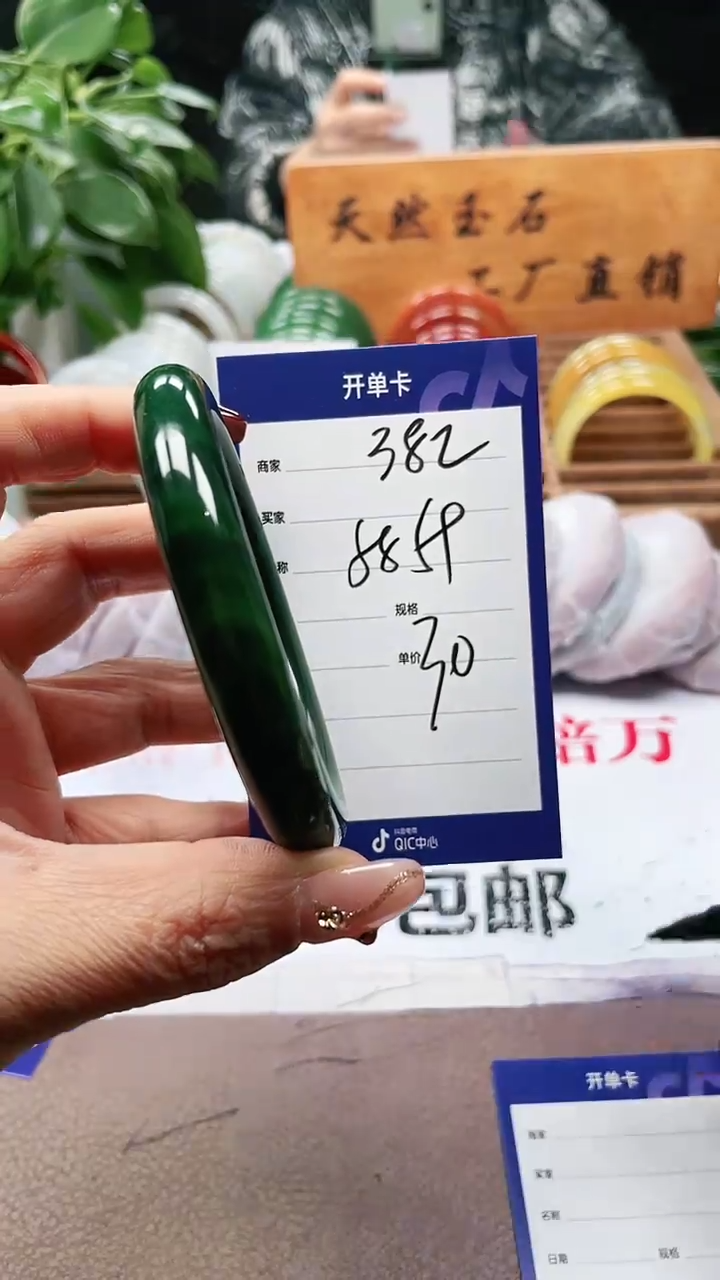 天然玉石
工厂直销
开单卡
商家 382
买家 8859
称
规格
单价 30
抖音电商
QIC中心
包邮
开单卡
商家
买家
名称
日期 规格